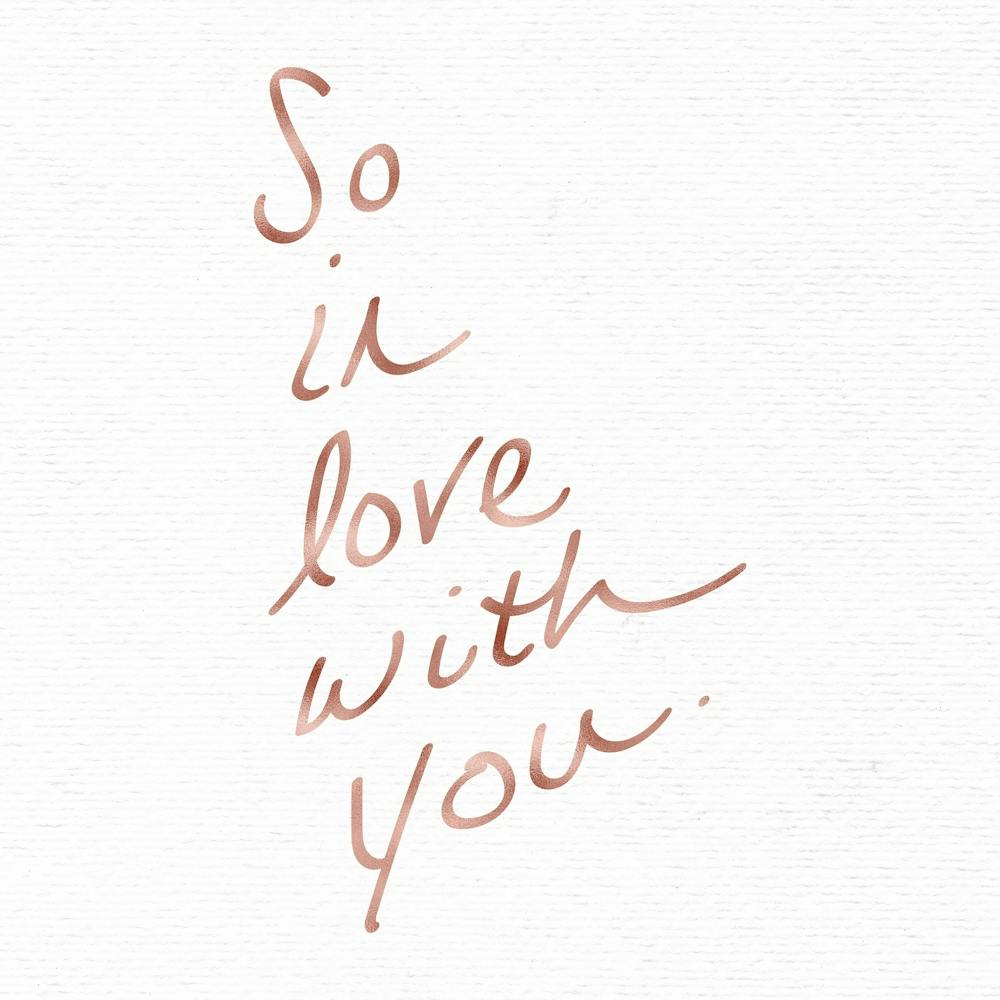 So
in
love
with
you.